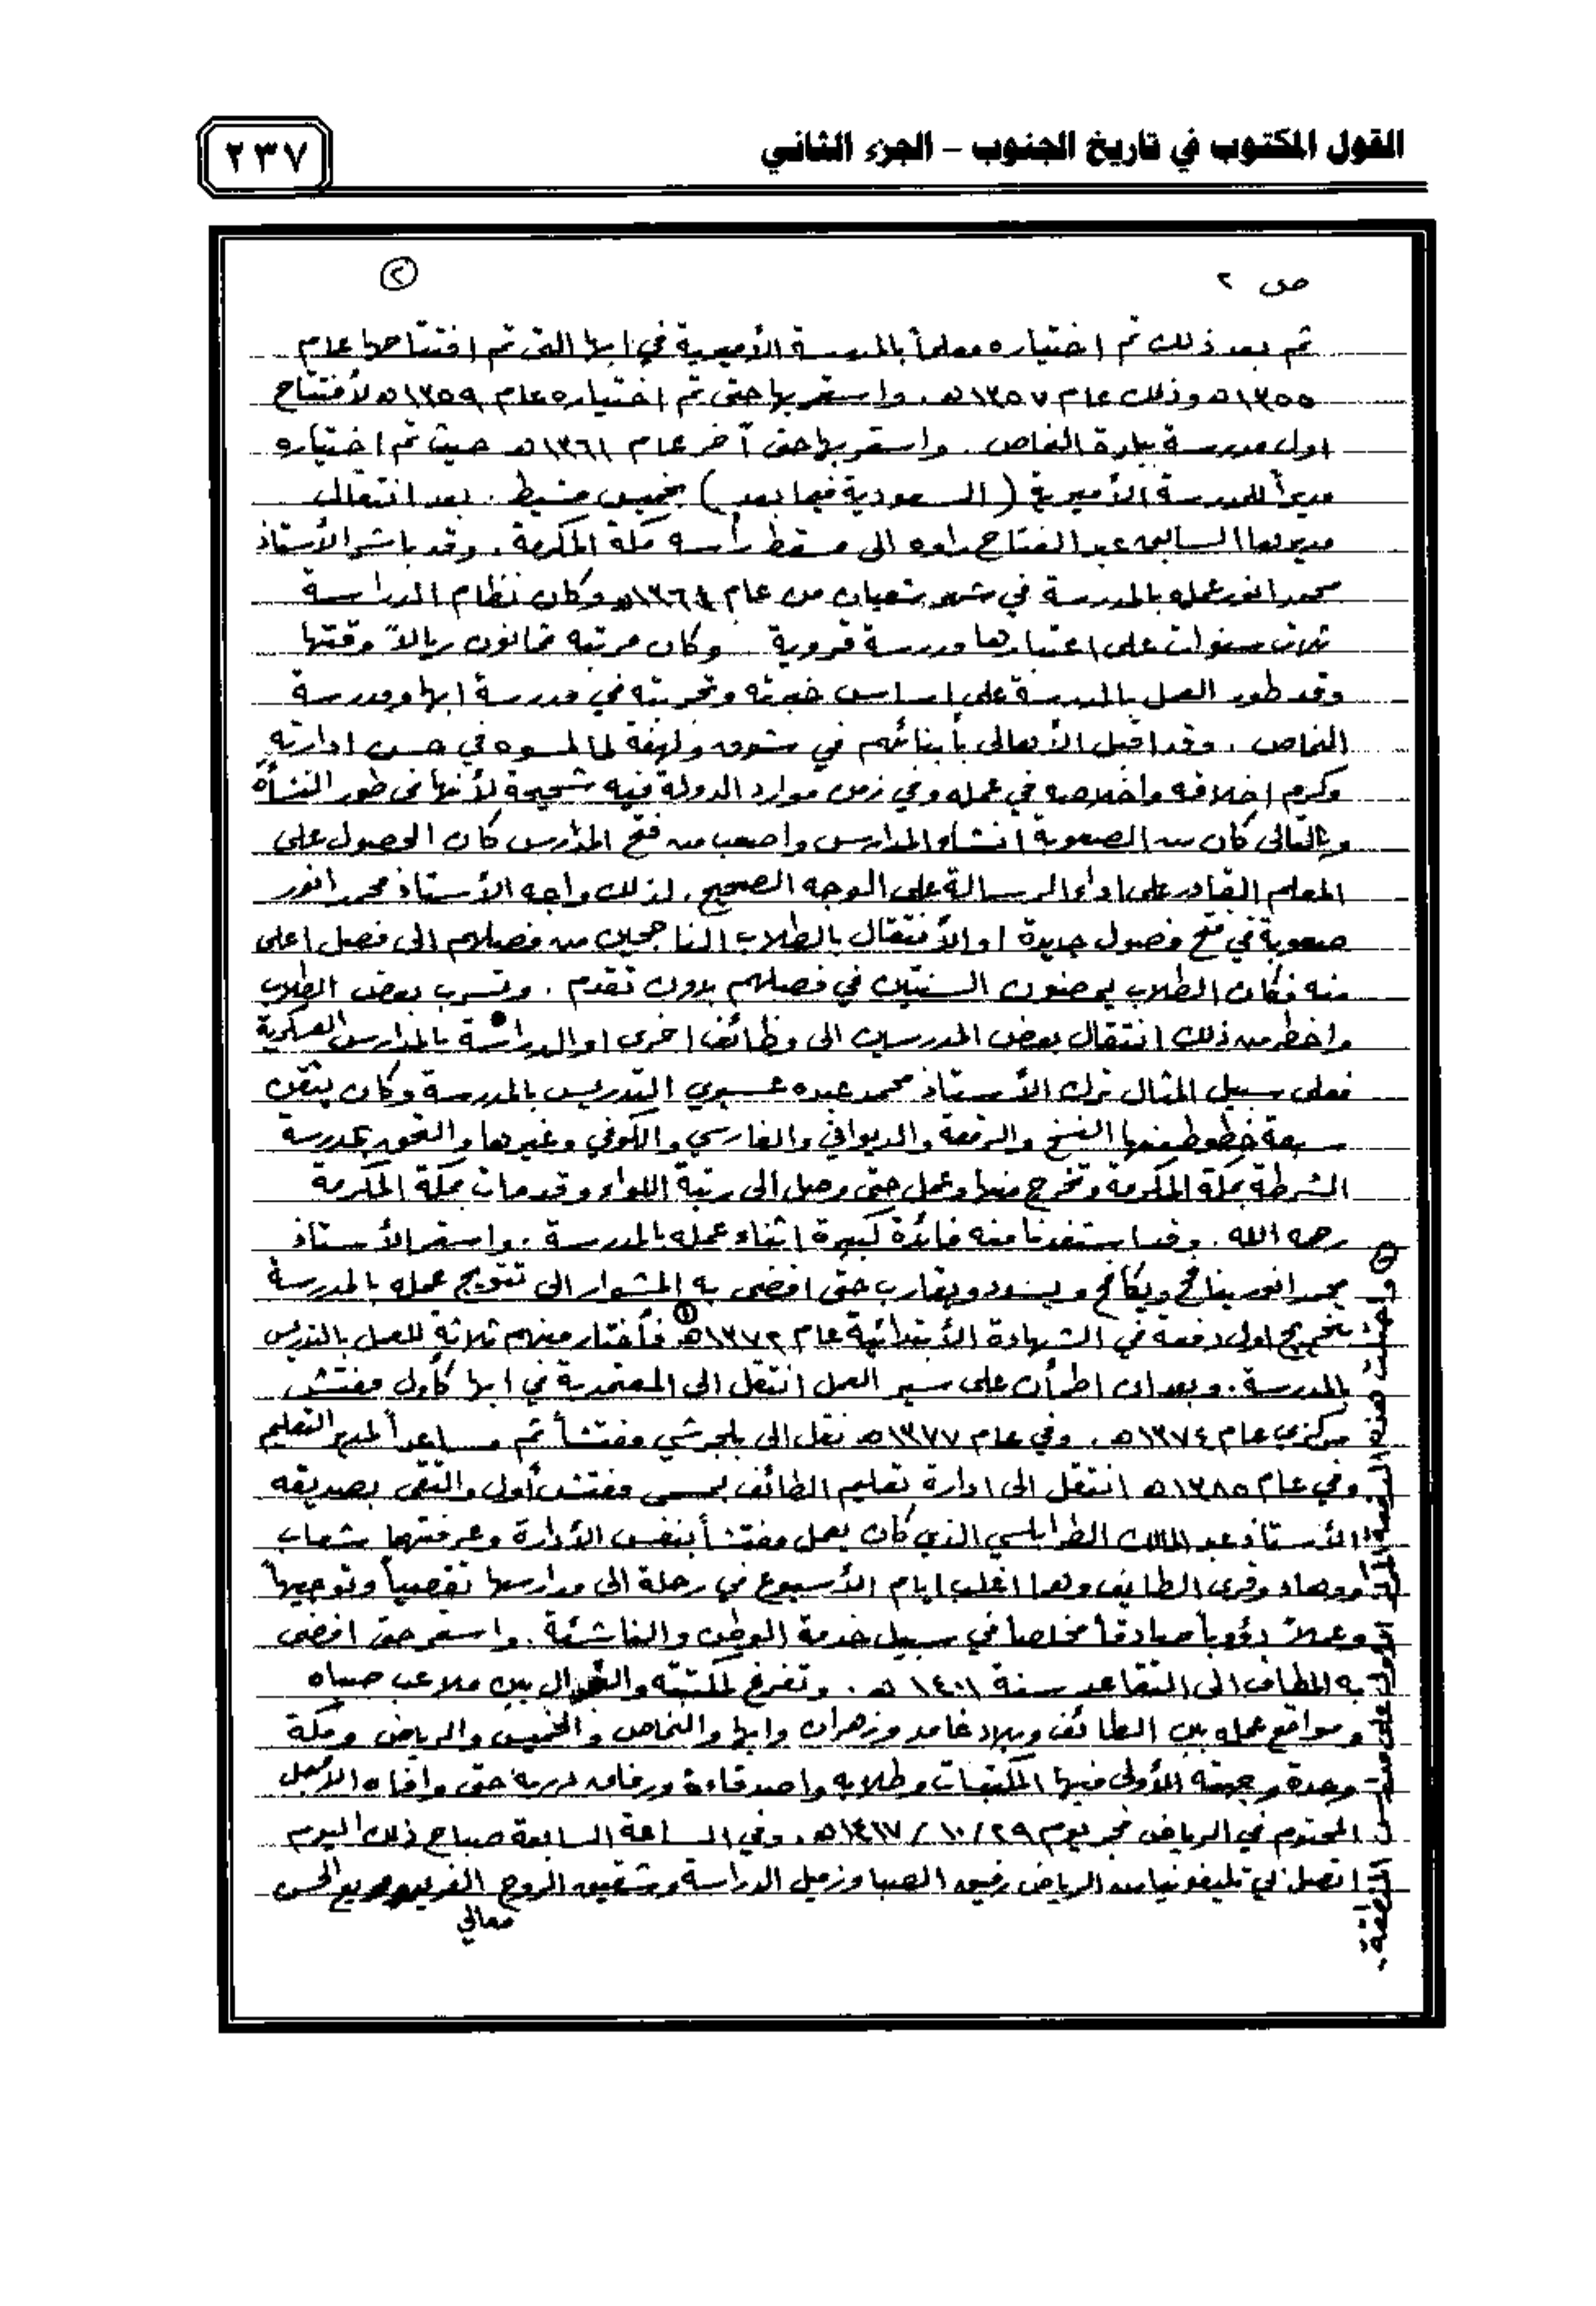 القول المكتوب في تاريخ الجنوب – الجزء الثاني
٢٣٧
ص ٢
٢
ثم بعد ذلك تم اختياره معلماً بالمدرسة الأميرية في ابها التي تم افتتاحها عام
١٣٥٥ه وذلك عام ١٣٥٧ه. واستمر بها حتى تم اختياره عام ١٣٥٩ه لأفتتاح
اول مدرسة ببلدة النماص. واستمر بها حتى آخر عام ١٣٦١ه حيث تم اختياره
مديراً للمدرسة الأميرية (السعودية فيما بعد) بخميس مشيط. بعد انتقال
مديرها السابق عبد الفتاح راوه الى مسقط رأسه مكة المكرمة. وقد باشر الأستاذ
محمد انور عمله بالمدرسة في شهر شعبان من عام ه وكان نظام الدراسة
ثلاث سنوات على اعتبارها مدرسة قروية وكان مرتبه ثمانون ريالاً وقتها
وقد طور العمل بالمدرسة على اساس خبرته وتجربته في مدرسة ابها ومدرسة
النماص. وقد اقبل الأهالي بأبنائهم في شوق ولهفة لما لمسوه في حسن ادارته
وكرم اخلاقه واخلاصه في عمله وفي زمن موارد الدولة فيه شحيحة لأنها في طور النشأة
وبالتالي كان من الصعوبة انشاء المدارس واصعب من فتح المدارس كان الحصول على
المعلم القادر على اداء الرسالة على الوجه الصحيح. لذلك واجه الأستاذ محمد انور
صعوبة في فتح فصول جديدة او الأنتقال بالطلاب الناجحين من فصيلهم الى فصل اعلى
منه فكان الطلاب يمضون السنتين في فصيلهم بدون تقدم. وتسرب بعض الطلاب
واخطر من ذلك انتقال بعض المدرسين الى وظائف اخرى او الدراسة بالمدارس العسكرية
فعلى سبيل المثال ترك الأستاذ محمد عبده عسيري التدريس بالمدرسة وكان يتقن
سبعة خطوط منها النسخ والرقعة والديواني والفارسي والكوفي وغيرها والتحق بمدرسة
الشرطة بمكة المكرمة وتخرج منها وعمل حتى وصل الى رتبة اللواء وقد مات بمكة المكرمة
رحمه الله. وقد استفدنا منه فائدة كبيرة اثناء عمله بالمدرسة. واستمر الأستاذ
محمد انور ينافح ويكافح ويسدد ويقارب حتى افضى به المشوار الى تتويج عمله بالمدرسة
بتخريج اول دفعة في الشهادة الأبتدائية عام ١٣٧٢ه (١) فأختار منهم ثلاثة للعمل بالتدريس
بالمدرسة. وبعد ان اطمأن على سير العمل انتقل الى المعتمدية في ابها كأول مفتش
مركزي عام ١٣٧٤ه. وفي عام ١٣٧٧ه نقل الى بلجرشي مفتشاً ثم مساعداً لمدير التعليم
وفي عام ١٣٨٥ه انتقل الى ادارة تعليم الطائف بمسمى مفتش أول والتقى بصديقه
الأستاذ عبد المالك الطرابلسي الذي كان يعمل مفتشاً بنفس الأدارة وعرفتهما شعاب
ووهاد وقرى الطايف وهما اغلب ايام الأسبوع في رحلة الى مدارسها تفصياً وتوجيهاً
وعملاً دؤوباً صادقاً مخلصاً في سبيل خدمة الوطن والناشئة. واستمر حتى افضى
به المطاف الى التقاعد سنة ١٤٠١ه. وتفرغ لمكتبته والتجوال بين ملاعب صباه
ومواقع عمله بين الطائف وبلاد غامد وزهران وابها والنماص والخميس والرياض ومكة
وجدة وجهته الأولى فيها المكتبات وطلابه واصدقاءه ورفاق دربه حتى وافاه الأجل
المحتوم في الرياض فجر يوم ٢٩/١٠/١٤١٧ه. وفي الساعة السابعة صباح ذلك اليوم
اتصل بي تليفونيا من الرياض رفيق الصبا وزميل الدراسة وشقيق الروح الفريق مريع الحسن
معالي
(١) واحيلت هذه الدفعة الأولى على مستوى المنطقة.